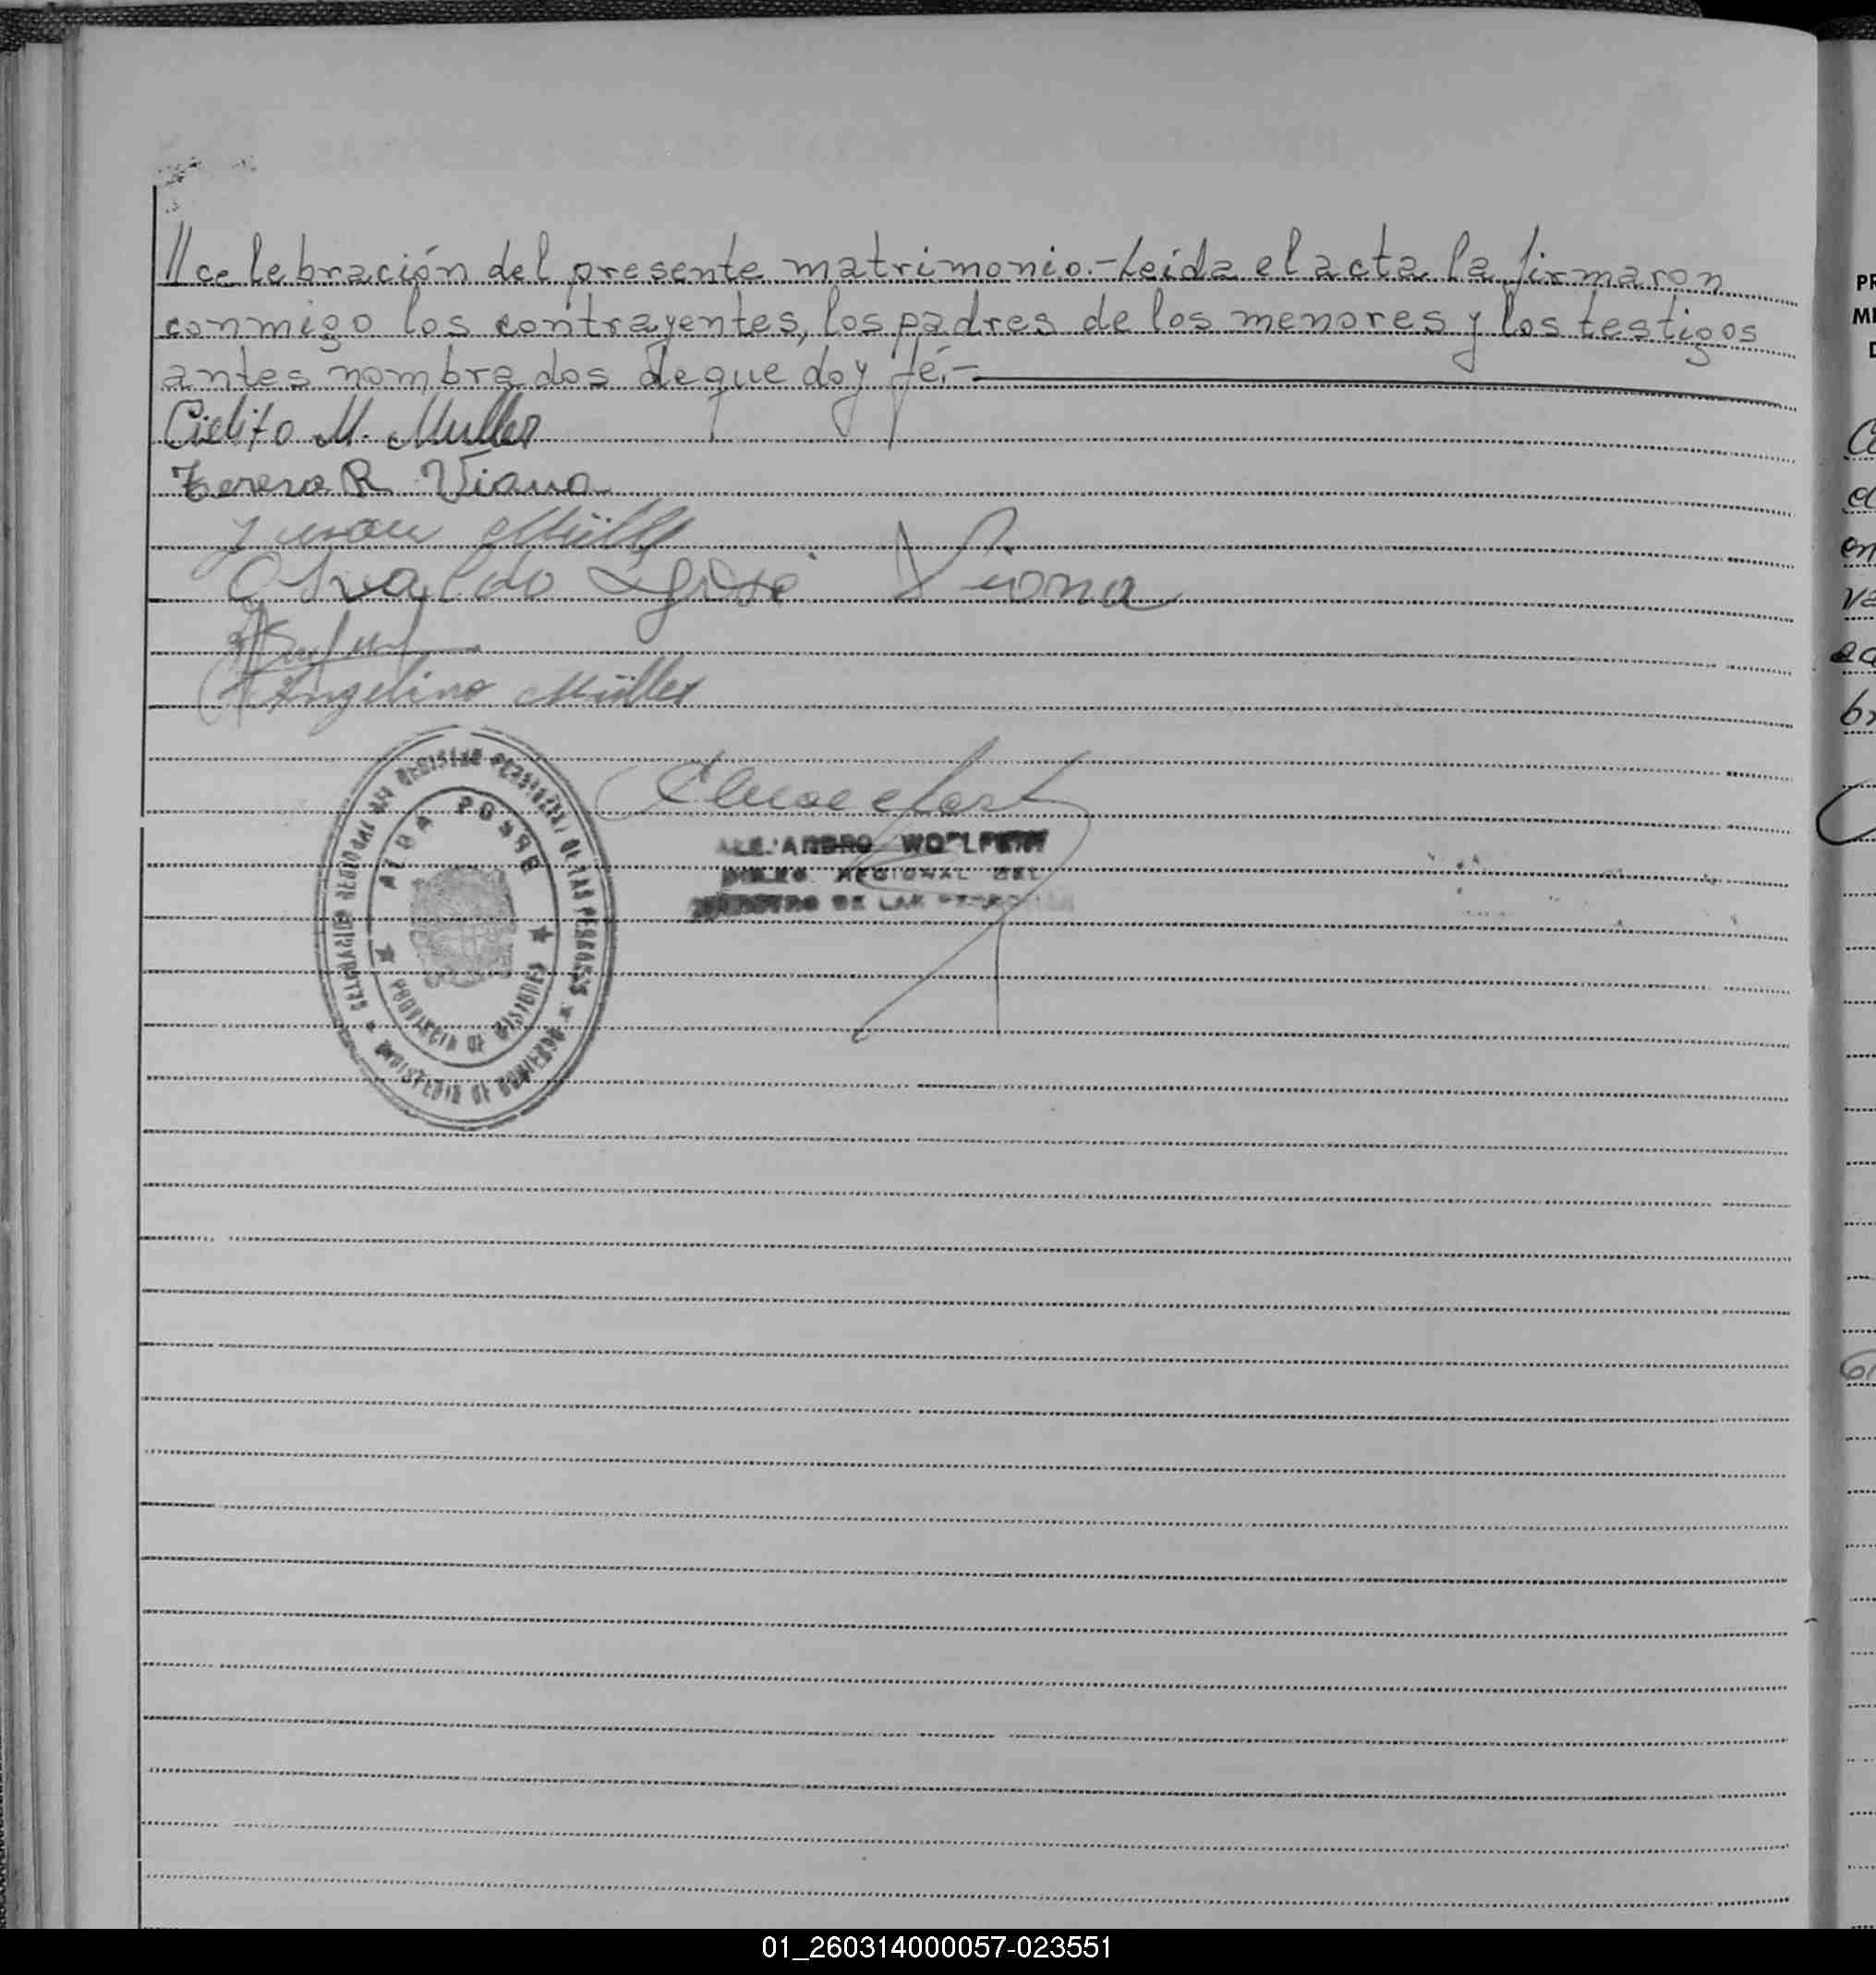 //celebración del presente matrimonio.-Leída el acta la firmaron
conmigo los contrayentes, los padres de los menores y los testigos
antes nombrados de que doy fé.-
Cielito M. Muller
Teresa R. Viana
Juan Müller
Osvaldo José Viana
Angelino Müller
DELEGACIONES DEL REGISTRO PROVINCIAL DE LAS PERSONAS
ALBA POSSE
PROVINCIA DE MISIONES
MINISTERIO DE GOBIERNO
ALEJANDRO
REGIONAL DEL
REGISTRO DE LAS PERSONAS
PR
ME
D
01_260314000057-023551